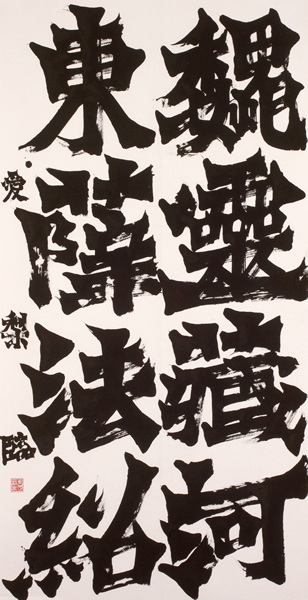 魏靈藏河
東薛法紹
愛梨臨